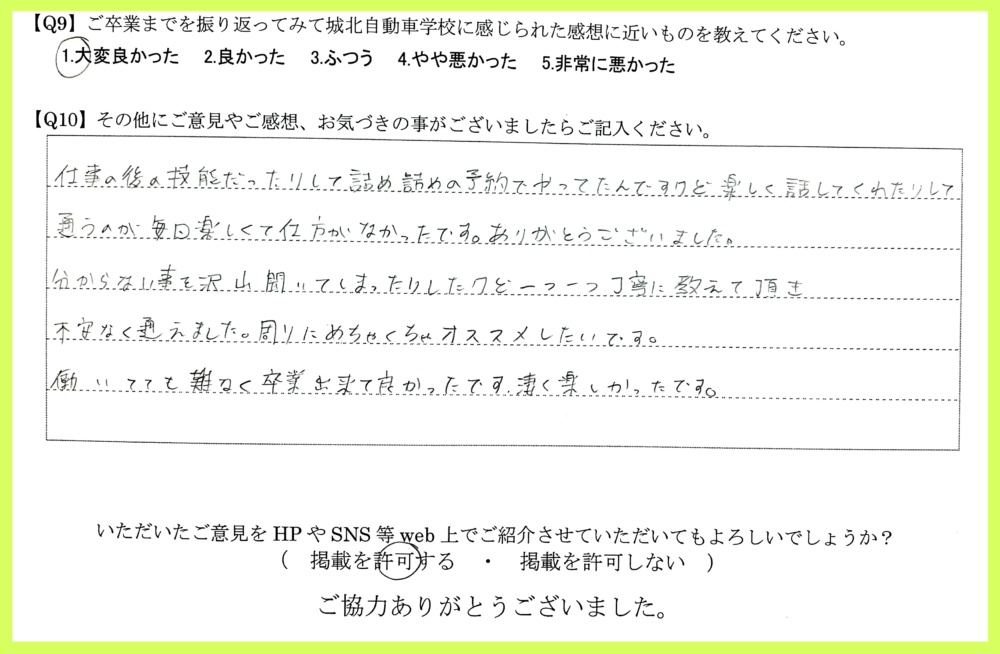 【Q9】ご卒業までを振り返ってみて城北自動車学校に感じられた感想に近いものを教えてください。
1.大変良かった 2.良かった 3.ふつう 4.やや悪かった 5.非常に悪かった
【Q10】その他にご意見やご感想、お気づきの事がございましたらご記入ください。
仕事の後の技能だったりして詰め詰めの予約でやってたんですけど楽しく話してくれたりして
通うのが毎日楽しくて仕方がなかったです。ありがとうございました。
分からない事を沢山聞いてしまったりしたけど一つ一つ丁寧に教えて頂き
不安なく通えました。周りにめちゃくちゃオススメしたいです。
働いてても難なく卒業出来て良かったです.凄く楽しかったです。
いただいたご意見をHPやSNS等web上でご紹介させていただいてもよろしいでしょうか？
( 掲載を許可する ・ 掲載を許可しない )
ご協力ありがとうございました。